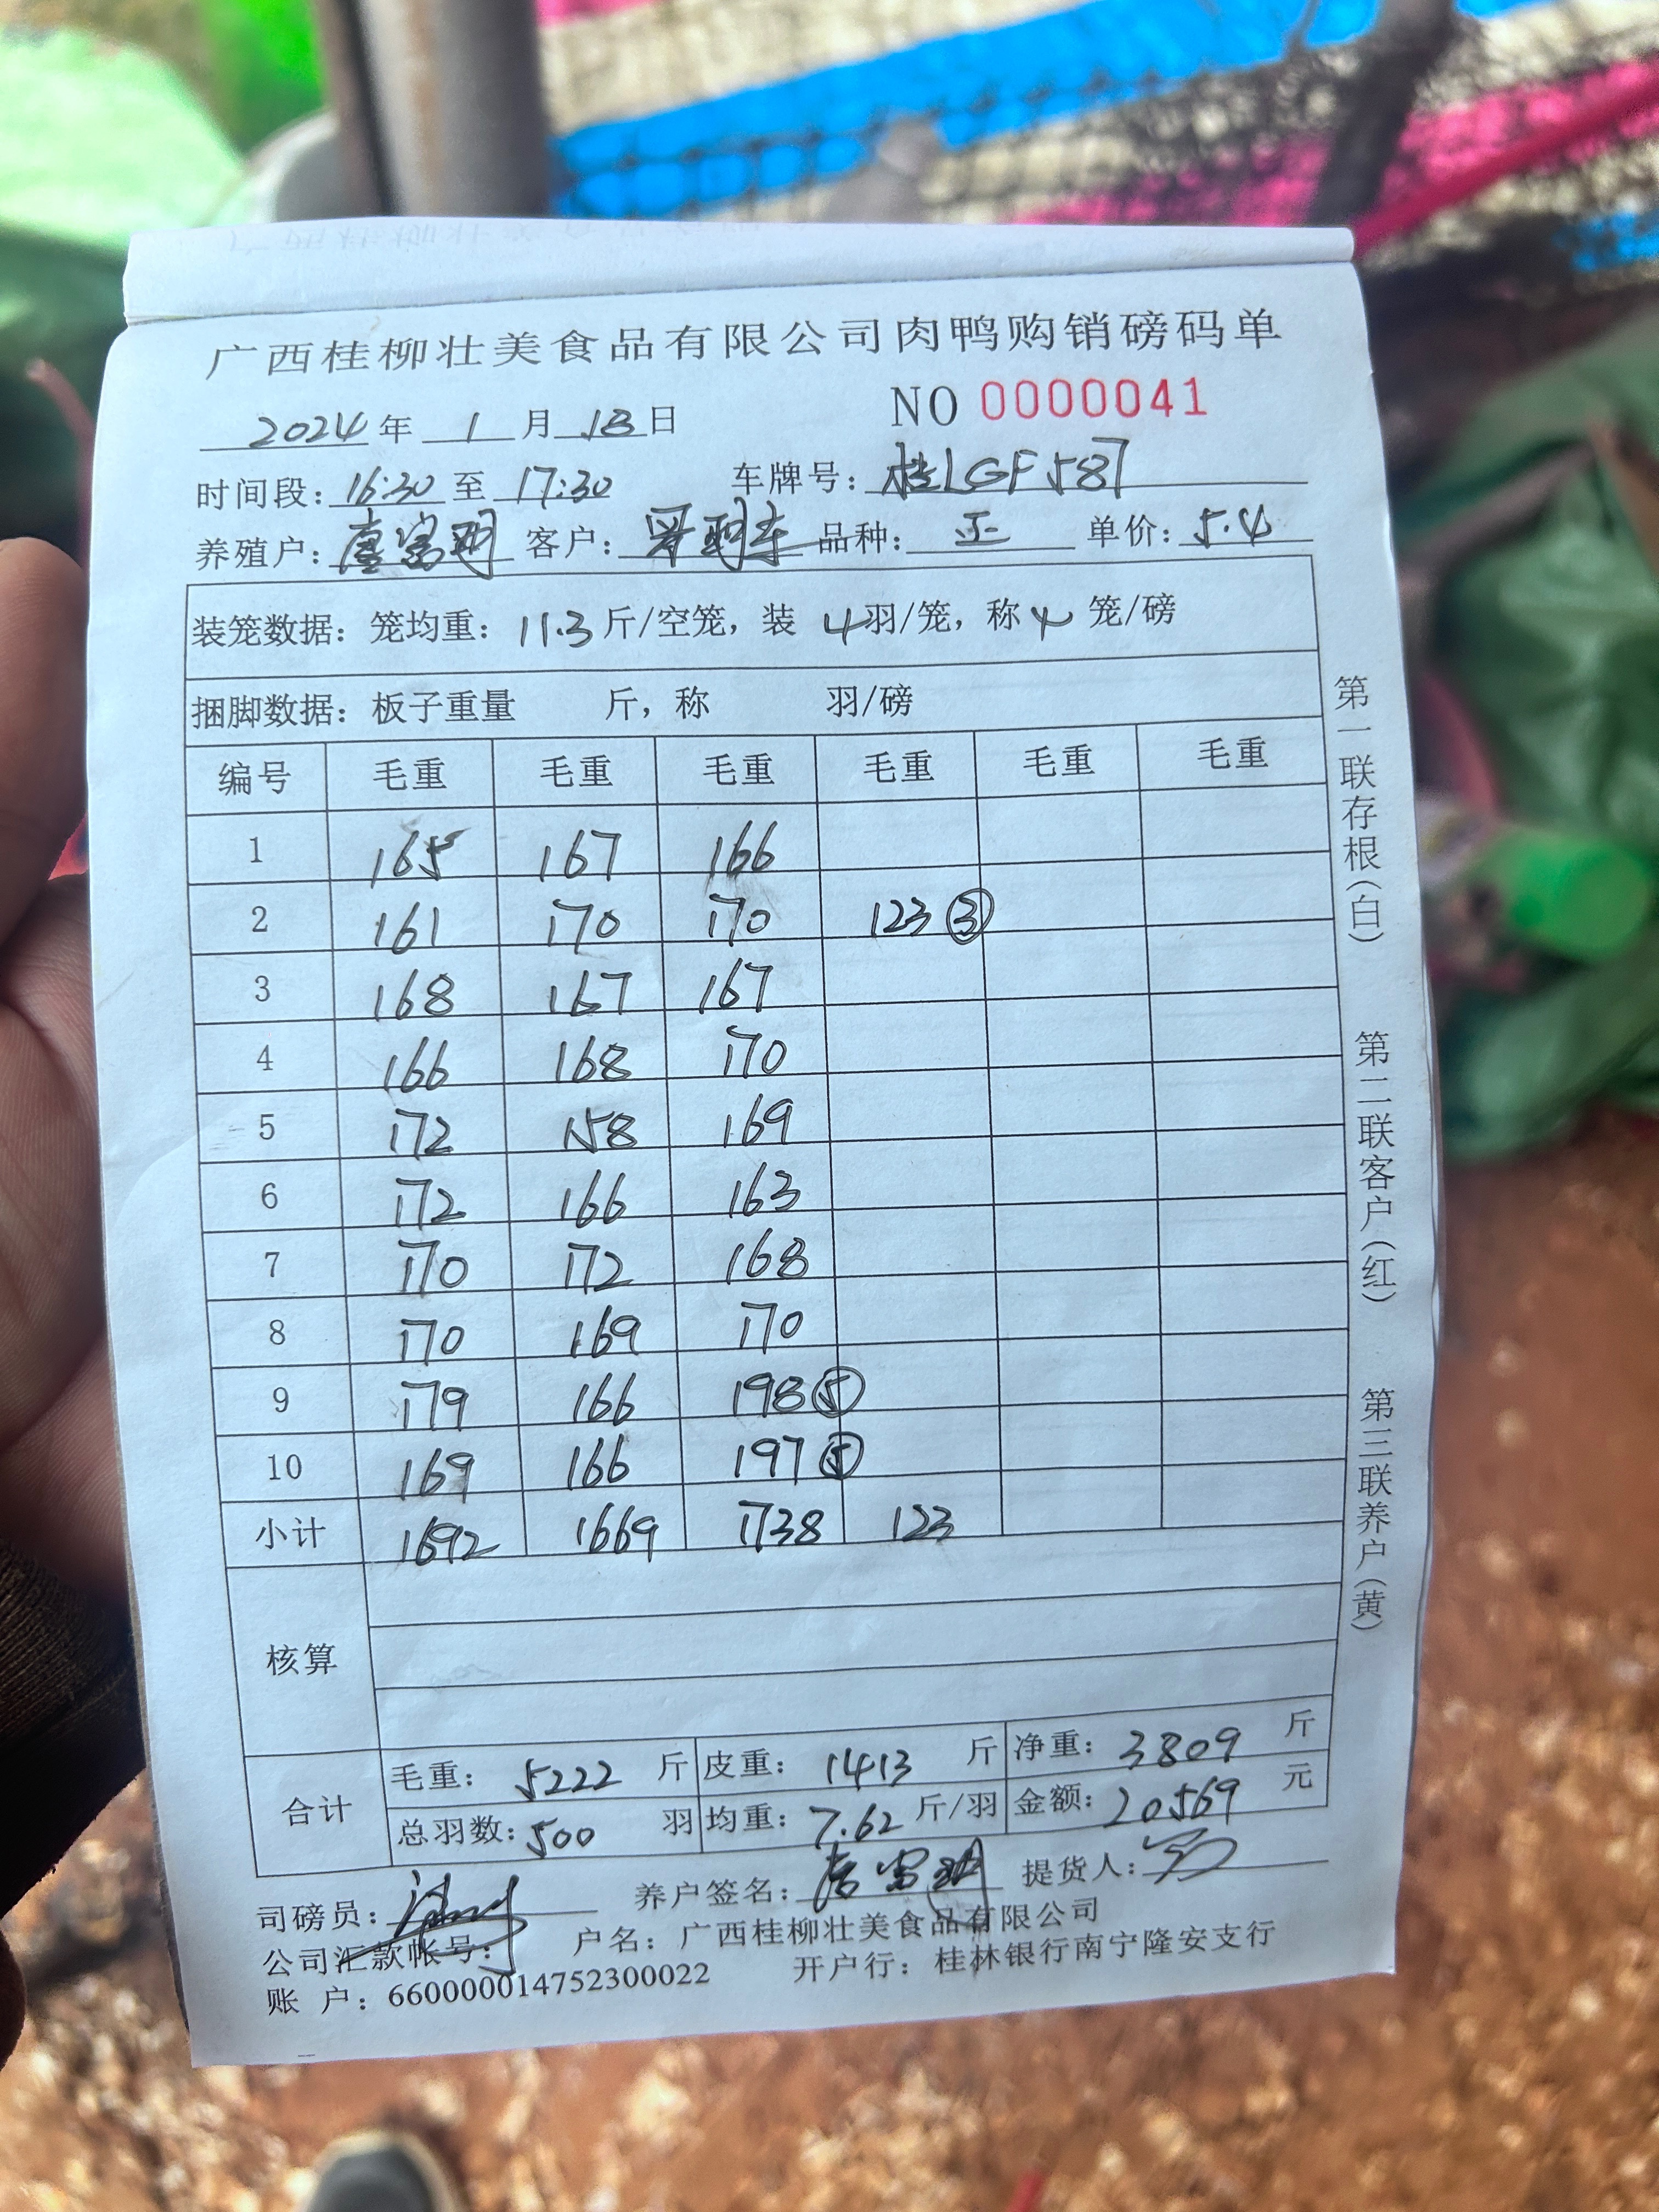 广西桂柳壮美食品有限公司肉鸭购销磅码单
2024年 1月 18日 NO 0000041
时间段：16:30 至 17:30 车牌号：桂LGF587
养殖户：唐富明 客户： 品种：正 单价：5.4
装笼数据：笼均重：11.3斤/空笼，装 4羽/笼，称4笼/磅
捆脚数据：板子重量 斤，称 羽/磅
编号 毛重 毛重 毛重 毛重 毛重 毛重
1 165 167 166
2 161 170 170 123 ③
3 168 167 167
4 166 168 170
5 172 158 169
6 172 166 163
7 170 172 168
8 170 169 170
9 179 166 198 ⑤
10 169 166 197 ⑤
小计 1692 1669 1738 123
核算
合计 毛重：5222 斤 皮重：1413 斤 净重：3809 斤
总羽数：500 羽 均重：7.62 斤/羽 金额：20569 元
司磅员： 养户签名：唐富明 提货人：
公司汇款帐号： 户名：广西桂柳壮美食品有限公司
账 户：660000014752300022 开户行：桂林银行南宁隆安支行
第一联存根（白） 第二联客户（红） 第三联养户（黄）